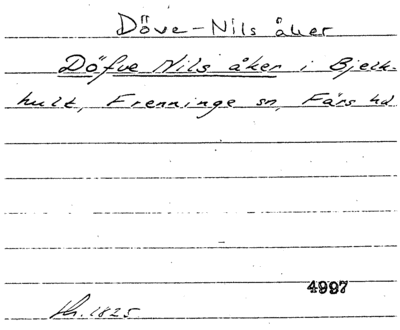 Döve-Nils åker
Döfve Nils åker i Bjelk-
hult, Frenninge sn, Färs hd
4997
Lh. 1825